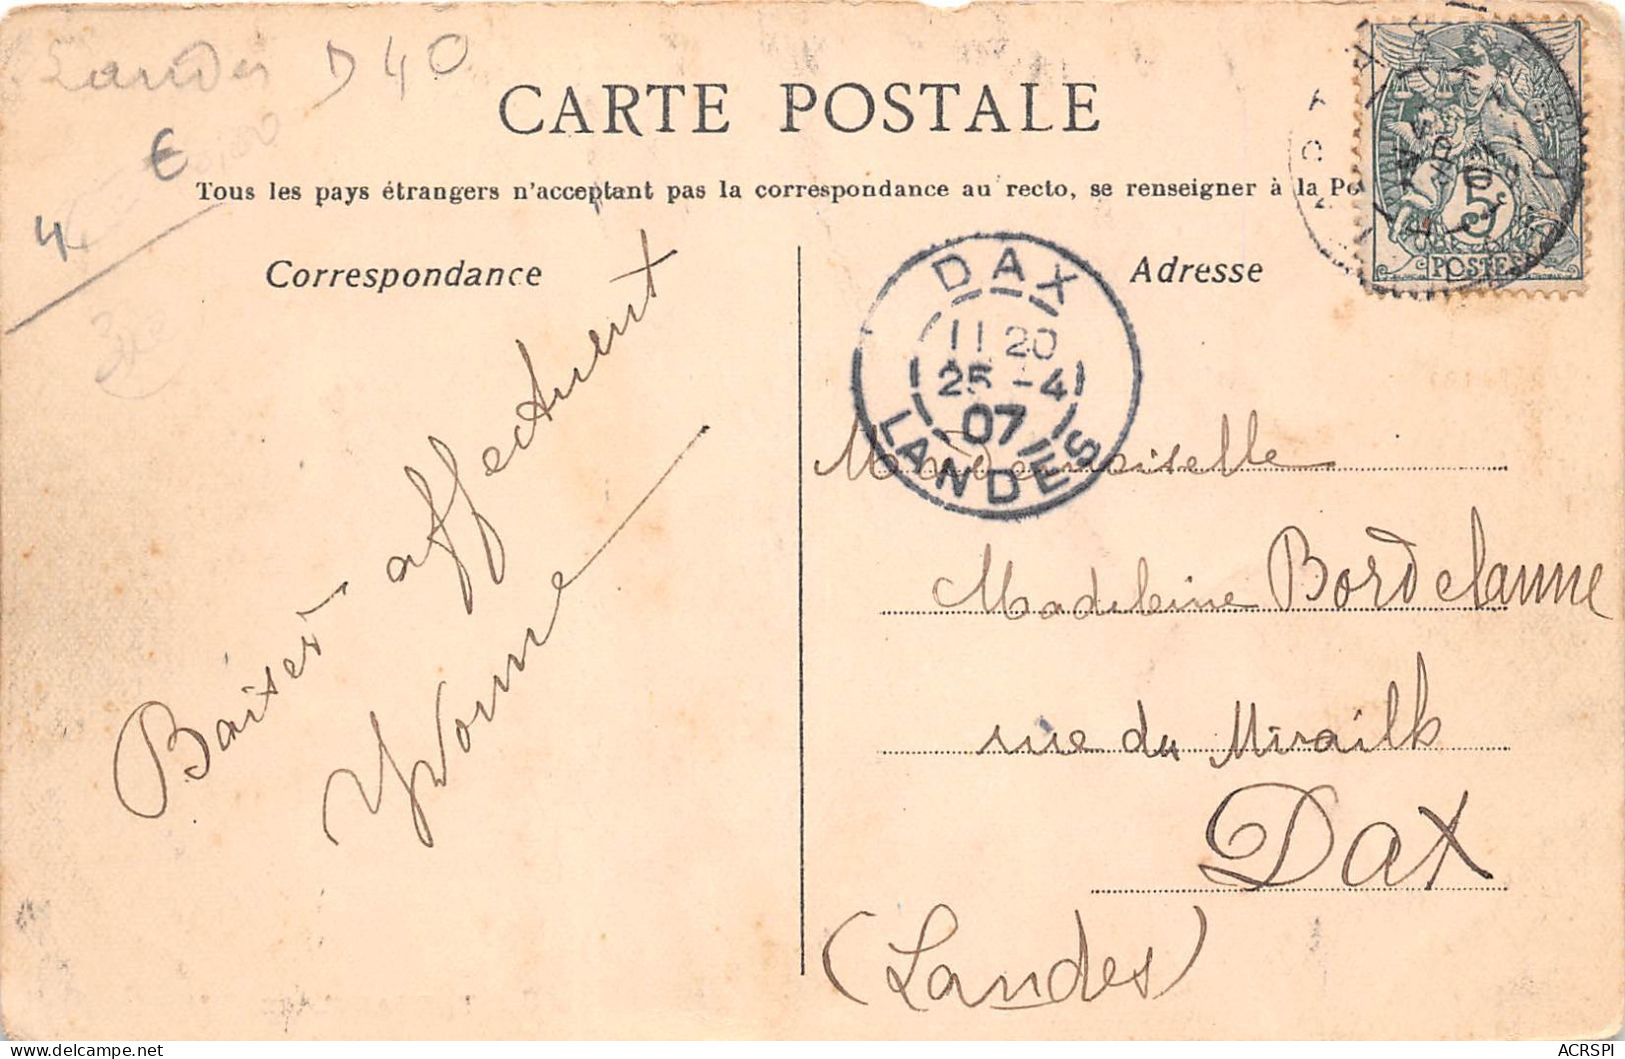 Landes D 40
€
4
CARTE POSTALE
Tous les pays étrangers n'acceptant pas la correspondance au recto, se renseigner à la Po
Correspondance
Adresse
DAX
11 20
25 -4
07
LANDES
5
POSTES
Baiser affectuent
Yvonne
Mademoiselle
Madeleine Bordelanne
rue du Mirailh
Dax
(Landes)
ACRSPI